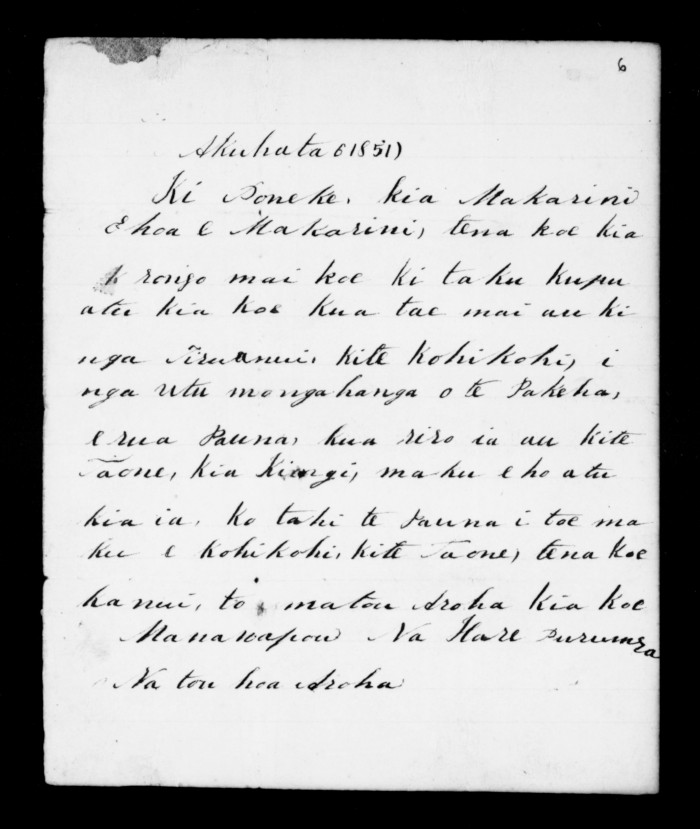 6
Akuhata 6 1851)
Ki Poneke, kia Makarini
E hoa e Makarini, tena koe kia
rongo mai koe ki taku kupu
atu kia koe kua tae mai au ki
nga kite kohikohi, i
nga utu mongahanga o te Pakeha,
e rua Pauna, kua riro ia au kite
Taone, kia maku e ho atu
kia ia, ko tahi te Pauna i toe ma
ku e kohikohi, kite Taone, tena koe
ka nui, to matou Aroha kia koe
Manawapou Na Hare
Na tou hoa Aroha